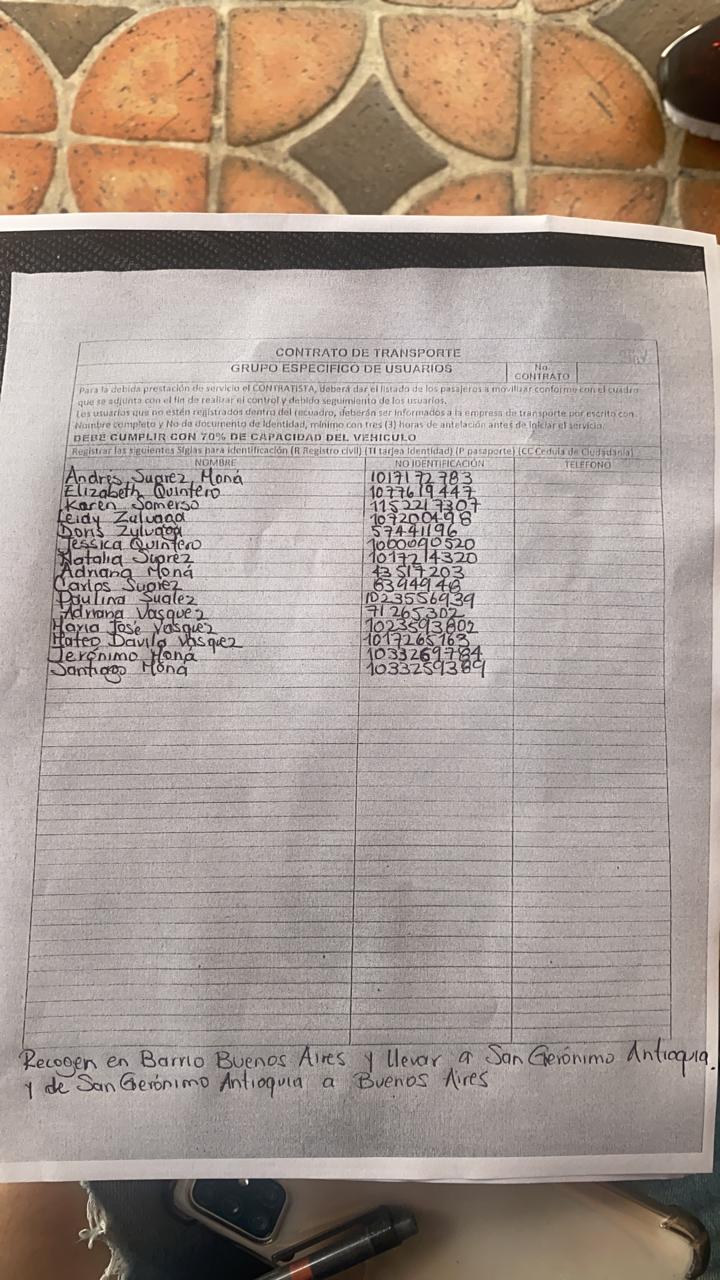 CONTRATO DE TRANSPORTE
GRUPO ESPECIFICO DE USUARIOS
No. CONTRATO
Para la debida prestación de servicio el CONTRATISTA, deberá dar el listado de los pasajeros a movilizar conforme con el cuadro
que se adjunta con el fin de realizar el control y debido seguimiento de los usuarios.
Los usuarios que no estén registrados dentro del recuadro, deberán ser informados a la empresa de transporte por escrito con
Nombre completo y No de documento de Identidad, mínimo con tres (3) horas de antelación antes de iniciar el servicio.
DEBE CUMPLIR CON 70% DE CAPACIDAD DEL VEHICULO
Registrar las siguientes Siglas para identificación (R Registro civil) (TI tarjea Identidad) (P pasaporte) (CC Cedula de Ciudadanía)
NOMBRE NO IDENTIFICACIÓN TELEFONO
Andrés Suarez Moná 1017172783
Elizabeth Quintero 1077619447
Karen Somerso 1152217307
Leidy Zuluaga
Doris Zuluaga 57441196
Jessica Quintero 1000090520
Natalia Suarez 1017214320
Adriana Moná 43517203
Carlos Suarez
Paulina Suarez 1023556939
Adriana Vasquez 71265302
Maria José Vasquez 1023593602
Mateo Davila Vasquez 1017265163
Jerónimo Moná 1033269784
Santiago Moná 1033259389
Recogen en Barrio Buenos Aires y llevar a San Gerónimo Antioquia.
y de San Gerónimo Antioquia a Buenos Aires